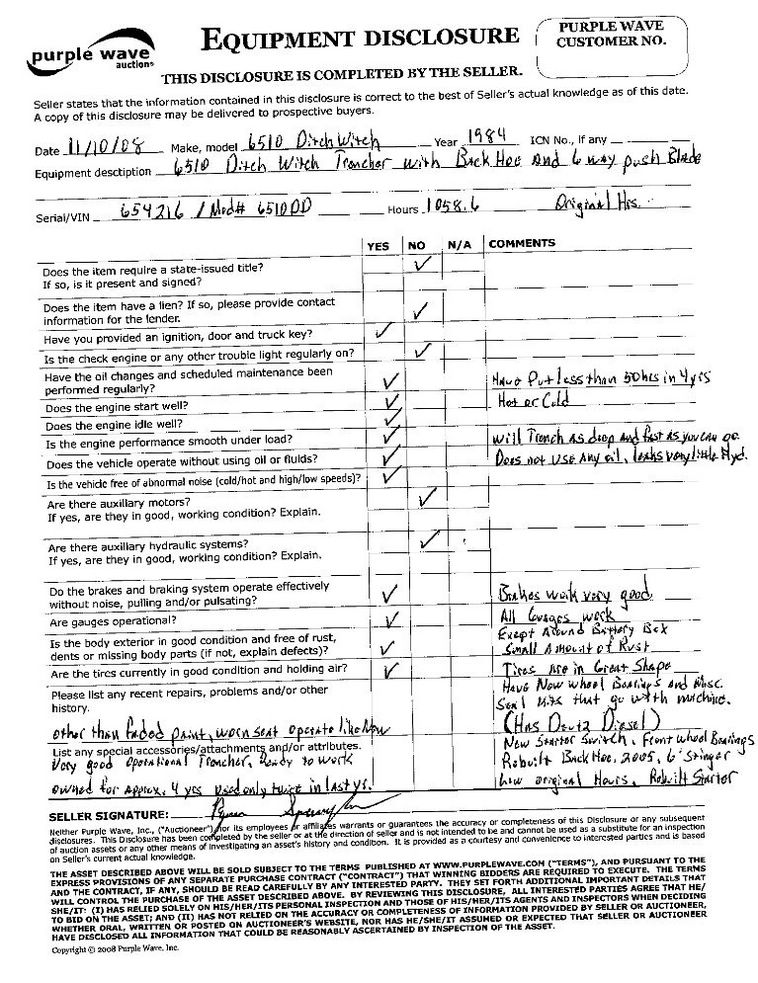 purple wave
auction®
EQUIPMENT DISCLOSURE
PURPLE WAVE
CUSTOMER NO.
THIS DISCLOSURE IS COMPLETED BY THE SELLER.
Seller states that the information contained in this disclosure is correct to the best of Seller's actual knowledge as of this date.
A copy of this disclosure may be delivered to prospective buyers.
Date 11/10/08 Make, model 6510 DitchWitch Year 1984 ICN No., if any
Equipment desctiption 6510 Ditch Witch Trencher with Back Hoe and 6 way push Blade
Serial/VIN 654216 / Mod# 6510DD Hours 1058.6 Original Hrs.
YES NO N/A COMMENTS
Does the item require a state-issued title? ✓
If so, is it present and signed?
Does the item have a lien? If so, please provide contact ✓
information for the lender.
Have you provided an ignition, door and truck key? ✓
Is the check engine or any other trouble light regularly on? ✓
Have the oil changes and scheduled maintenance been
performed regularly? ✓ Have Put less than 50 hrs in 4 yrs
Does the engine start well? ✓ Hot or Cold
Does the engine idle well? ✓
Is the engine performance smooth under load? ✓ will Trench as deep and fast as you can go.
Does the vehicle operate without using oil or fluids? ✓ Does not use Any oil, leaks very little Hyd.
Is the vehicle free of abnormal noise (cold/hot and high/low speeds)? ✓
Are there auxiliary motors? ✓
If yes, are they in good, working condition? Explain.
Are there auxiliary hydraulic systems? ✓
If yes, are they in good, working condition? Explain.
Do the brakes and braking system operate effectively
without noise, pulling and/or pulsating? ✓ Brakes work very good
Are gauges operational? ✓ All Gauges work
Is the body exterior in good condition and free of rust, Exept Around Battery Box
dents or missing body parts (if not, explain defects)? ✓ Small Amount of Rust
Are the tires currently in good condition and holding air? ✓ Tires Are in Great Shape
Please list any recent repairs, problems and/or other Have New wheel Bearings and Misc.
history. Seal kits that go with machine.
other than faded paint, worn seat operate like New (Has Deutz Diesel)
List any special accessories/attachments and/or attributes. New Starter Switch, Front Wheel Bearings
Very good operational Trencher, Ready to work Rebuilt BackHoe, 2005, 6' Stinger
owned for approx. 4 yes used only twice in last yr. Low original Hours, Rebuilt Starter
SELLER SIGNATURE:
Neither Purple Wave, Inc., ("Auctioneer") nor its employees or affiliates warrants or guarantees the accuracy or completeness of this Disclosure or any subsequent
disclosures. This Disclosure has been completed by the seller or at the direction of seller and is not intended to be and cannot be used as a substitute for an inspection
of auction assets or any other means of investigating an asset's history and condition. It is provided as a courtesy and convenience to interested parties and is based
on Seller's current actual knowledge.
THE ASSET DESCRIBED ABOVE WILL BE SOLD SUBJECT TO THE TERMS PUBLISHED AT WWW.PURPLEWAVE.COM ("TERMS"), AND PURSUANT TO THE
EXPRESS PROVISIONS OF ANY SEPARATE PURCHASE CONTRACT ("CONTRACT") THAT WINNING BIDDERS ARE REQUIRED TO EXECUTE. THE TERMS
AND THE CONTRACT, IF ANY, SHOULD BE READ CAREFULLY BY ANY INTERESTED PARTY. THEY SET FORTH ADDITIONAL IMPORTANT DETAILS THAT
WILL CONTROL THE PURCHASE OF THE ASSET DESCRIBED ABOVE. BY REVIEWING THIS DISCLOSURE, ALL INTERESTED PARTIES AGREE THAT HE/
SHE/IT: (I) HAS RELIED SOLELY ON HIS/HER/ITS PERSONAL INSPECTION AND THOSE OF HIS/HER/ITS AGENTS AND INSPECTORS WHEN DECIDING
TO BID ON THE ASSET; AND (II) HAS NOT RELIED ON THE ACCURACY OR COMPLETENESS OF INFORMATION PROVIDED BY SELLER OR AUCTIONEER,
WHETHER ORAL, WRITTEN OR POSTED ON AUCTIONEER'S WEBSITE, NOR HAS HE/SHE/IT ASSUMED OR EXPECTED THAT SELLER OR AUCTIONEER
HAVE DISCLOSED ALL INFORMATION THAT COULD BE REASONABLY ASCERTAINED BY INSPECTION OF THE ASSET.
Copyright © 2008 Purple Wave, Inc.